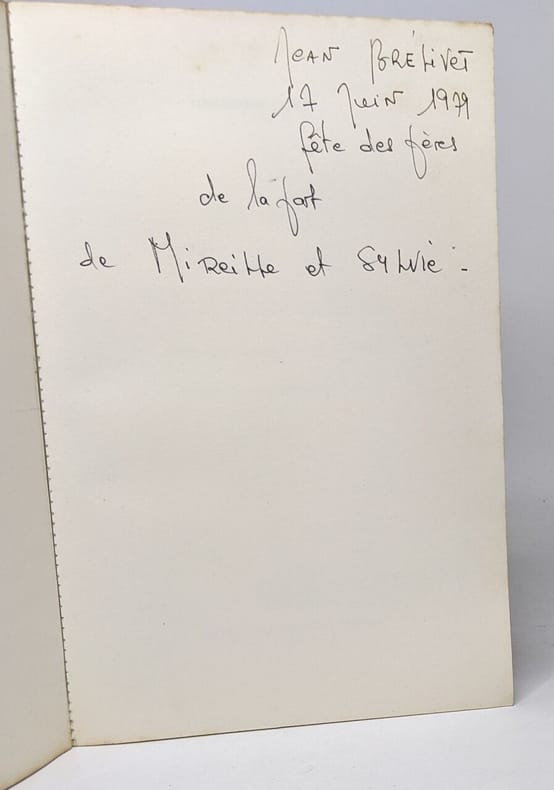 Jean BRÉLIVET
17 Juin 1979
fête des fères
de la fart
de Mireille et Sylvie.